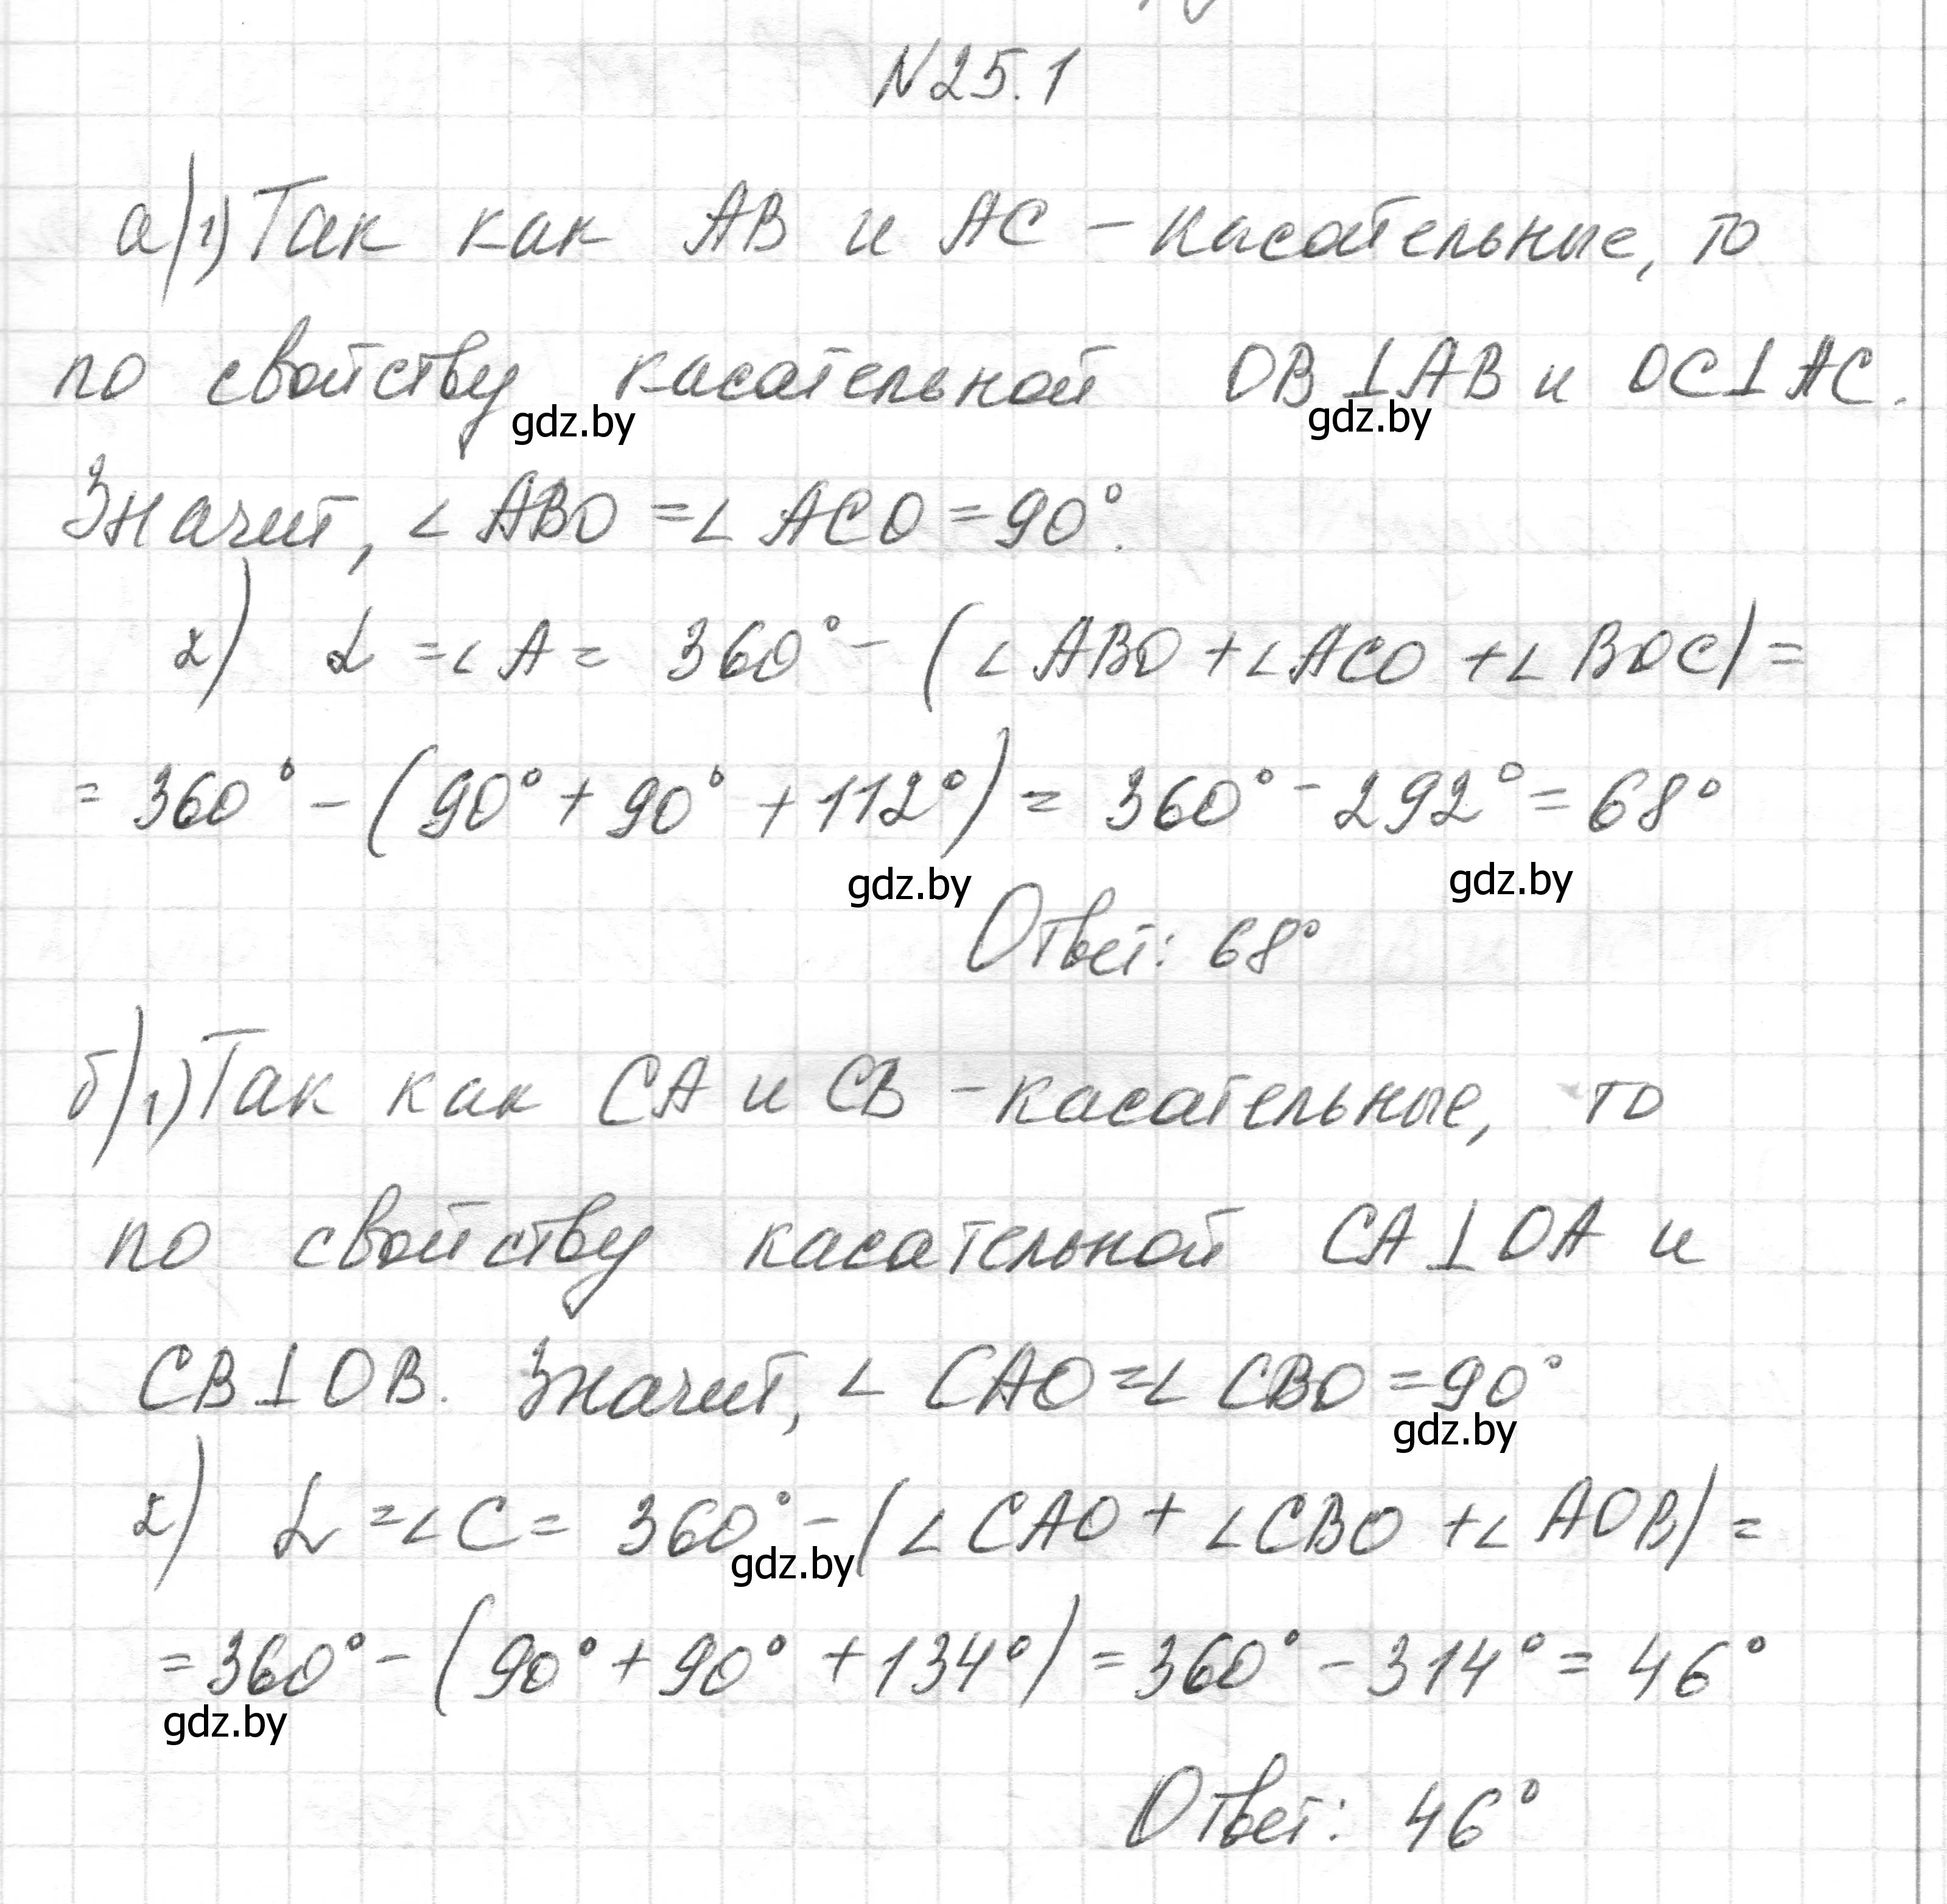 N 25.1
а) 1) Так как AB и AC - касательные, то
по свойству касательной OB ⊥ AB и OC ⊥ AC.
gdz.by gdz.by
Значит, ∠ ABO = ∠ ACO = 90°.
2) α = ∠ A = 360° - (∠ ABO + ∠ ACO + ∠ BOC) =
= 360° - (90° + 90° + 112°) = 360° - 292° = 68°
gdz.by gdz.by
Ответ: 68°
б) 1) Так как CA и CB - касательные, то
по свойству касательной CA ⊥ OA и
CB ⊥ OB. Значит, ∠ CAO = ∠ CBO = 90°
gdz.by
2) α = ∠ C = 360° - (∠ CAO + ∠ CBO + ∠ AOB) =
gdz.by
= 360° - (90° + 90° + 134°) = 360° - 314° = 46°
gdz.by
Ответ: 46°